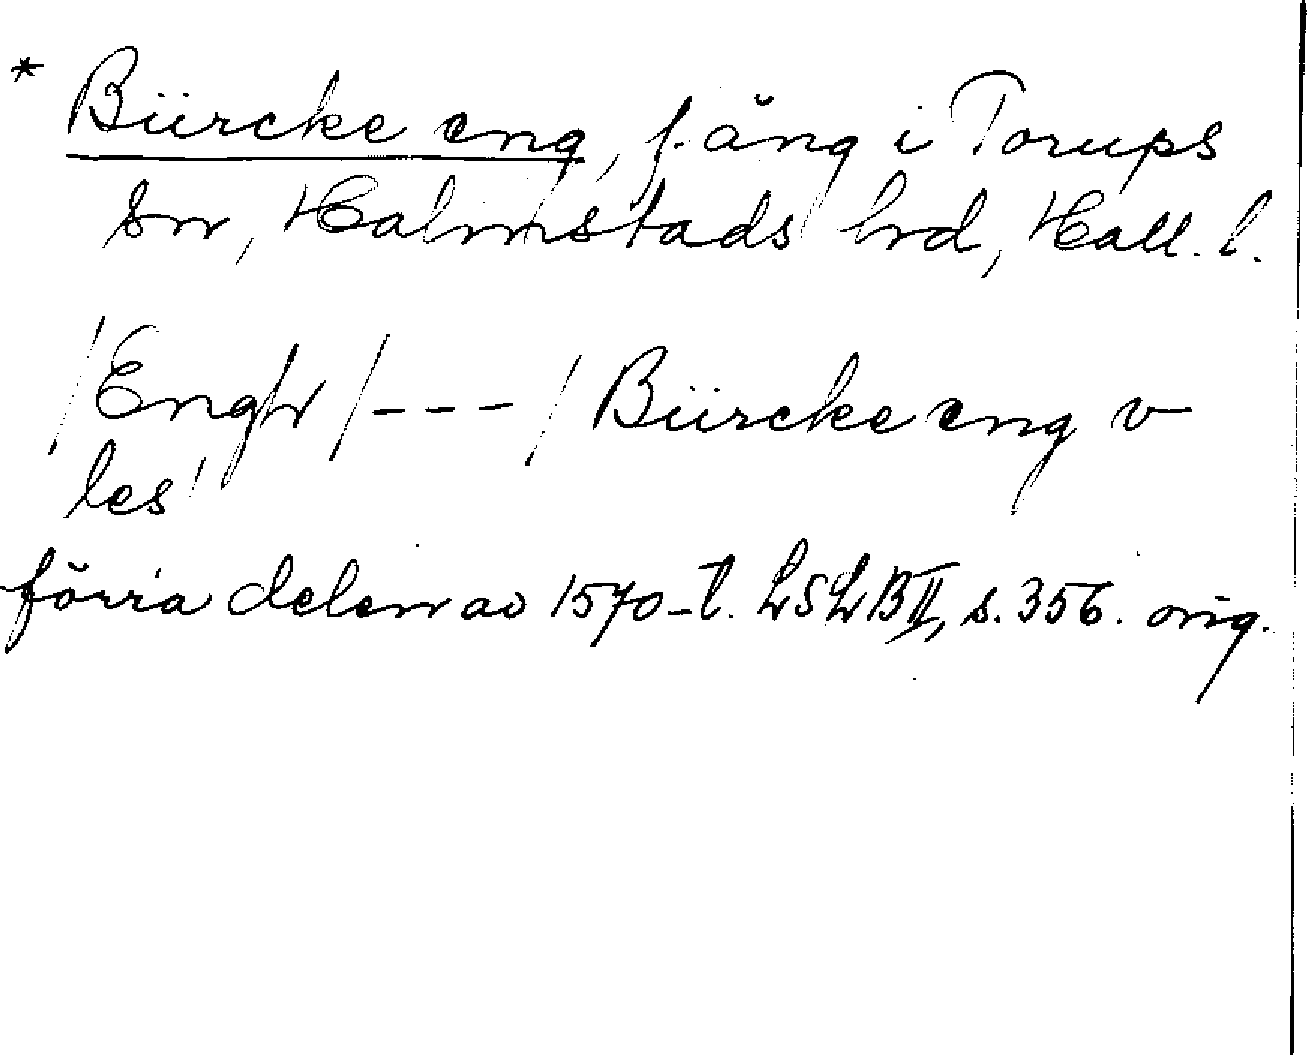 * Bürcke eng, f. äng i Torups
sn, Halmstads hd, Hall. l.
/Engh/---/Bürcke eng v
les'
förra delen av 1570-t. LSLB II, s. 356. orig.